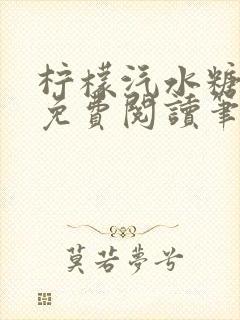 柠檬汽水糖
免費閱讀筆
莫若夢兮